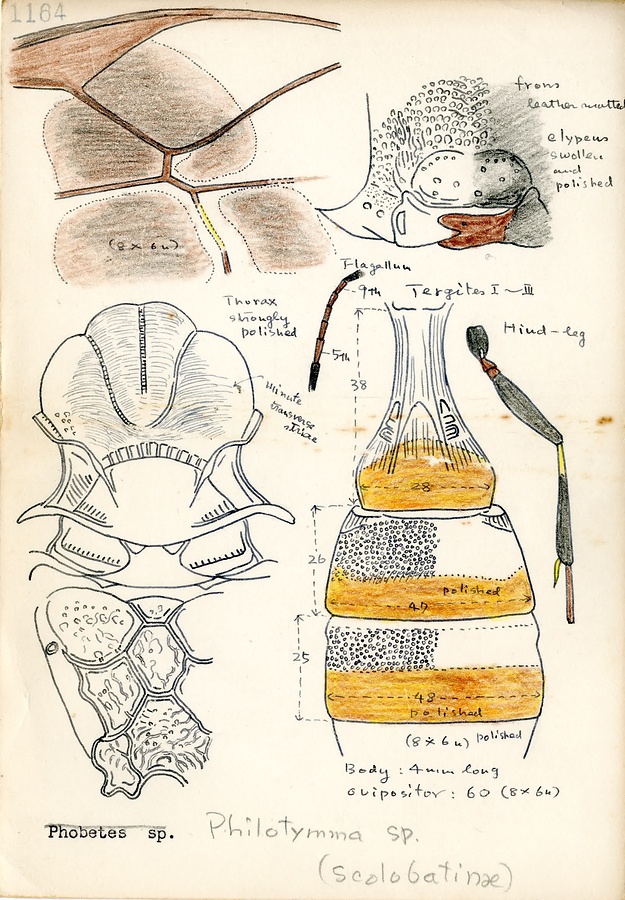 1164
frons
leather matted
clypeus
swollen
and
polished
(8×6u)
Flagellum
9th
5th
Tergites I~III
Thorax
strongly
polished
Hind-leg
minute
transverse
striae
38
28
26
polished
47
25
48
polished
(8×6u) polished
Body : 4mm long
ovipositor : 60 (8×6u)
Phobetes sp.
Philotymma sp.
(Scolobatinæ)